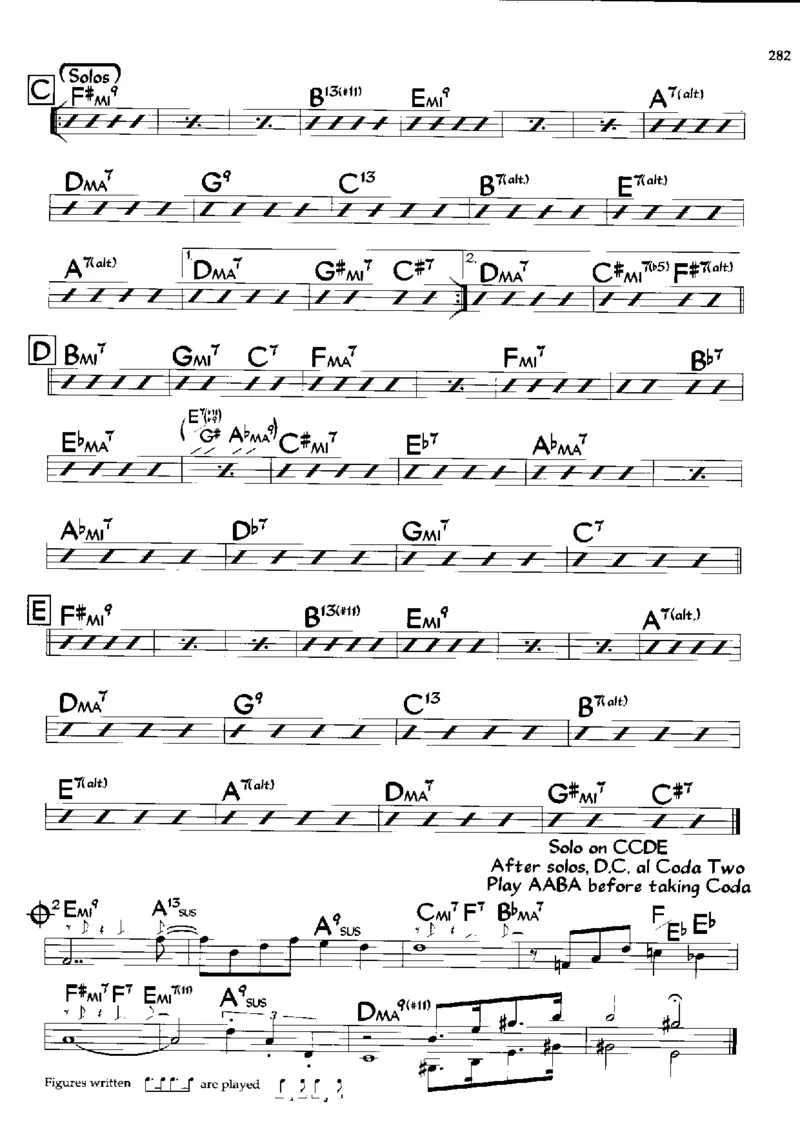 282
C (Solos)
F#MI9 B13(#11) EMI9 A7(alt.)
DMA7 G9 C13 B7(alt.) E7(alt.)
A7(alt) 1. DMA7 G#MI7 C#7 2. DMA7 C#MI7(b5) F#7(alt.)
D BMI7 GMI7 C7 FMA7 FMI7 Bb7
EbMA7 (E7(#11 #9) G# AbMA9) C#MI7 Eb7 AbMA7
AbMI7 Db7 GMI7 C7
E F#MI9 B13(#11) EMI9 A7(alt.)
DMA7 G9 C13 B7(alt)
E7(alt) A7(alt) DMA7 G#MI7 C#7
Solo on CCDE
After solos, D.C. al Coda Two
Play AABA before taking Coda
2 EMI9 A13SUS A9SUS CMI7 F7 BbMA7 F Eb Eb
F#MI7 F7 EMI7(11) A9SUS 3 DMA9(#11)
Figures written are played